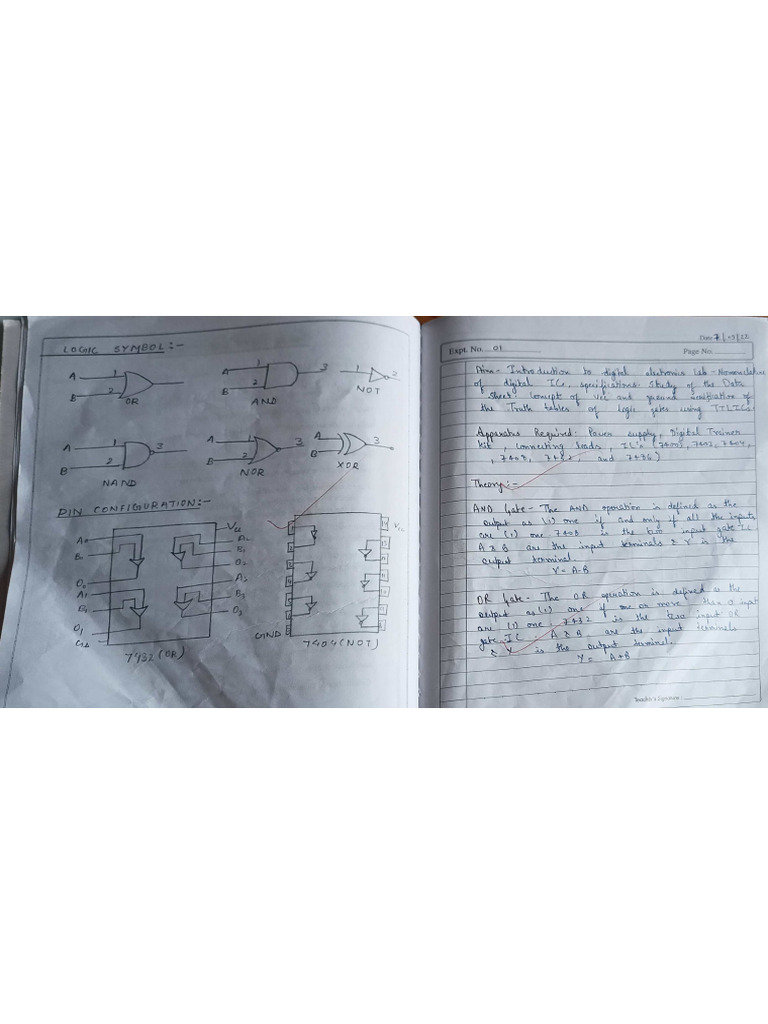 LOGIC SYMBOL:-
A 1
B 2
OR
A 1 3
B 2
AND
1 2
NOT
A 1 3
B 2
NAND
A 1 3
B 2
NOR
A 3
B
XOR
PIN CONFIGURATION:-
A0
B0
O0
A1
B1
O1
Vcc
B2
O2
A3
B3
O3
7432(OR)
GND
7404(NOT)
Date 7/03/22
Expt. No. 01
Page No.
Aim- Introduction to digital electronics lab-Nomenclature
of digital ICs, specifications study of the Data
sheet concept of Vcc and ground verification of
the Truth tables of logic gates using TTLICs
Apparatus Required: Power supply, Digital Trainer
kit, connecting leads, IC's (7400, 7402, 7404,
, 7408, 7432, and
Theory:-
AND Gate- The AND operation is defined as the
output as (1) one if and only if all the inputs
are (1) one 7408 is the two input gate IC
A & B are the input terminals & Y is the
output terminal.
Y = A.B
OR Gate- The OR operation is defined as the
output as (1) one if one or more than 0 input
are (1) one 7432 is the two input OR
gate IC A & B are the input terminals
& Y is the output terminal.
Y = A+B
Teacher's Signature: